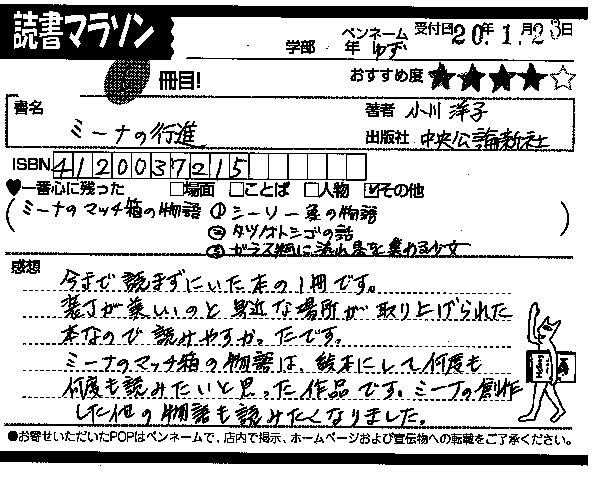 読書マラソン
学部 年 ペンネーム ゆず 受付日 20年 1月 23日
冊目! おすすめ度 ★★★★☆
書名 ミーナの行進
著者 小川 洋子
出版社 中央公論新社
ISBN 4120037215
♥一番心に残った □場面 □ことば □人物 ☑その他
(ミーナのマッチ箱の物語 ①シーソー象の物語
②タツノオトシゴの話
③ガラス瓶に流れ星を集める少女)
感想
今まで読まずにいた本の1冊です。
装丁が美しいのと身近な場所が取り上げられた
本なので読みやすかったです。
ミーナのマッチ箱の物語は、絵本にして何度も
何度も読みたいと思った作品です。ミーナの創作
した他の物語も読みたくなりました。
●お寄せいただいたPOPはペンネームで、店内で掲示、ホームページおよび宣伝物への転載をご了承ください。